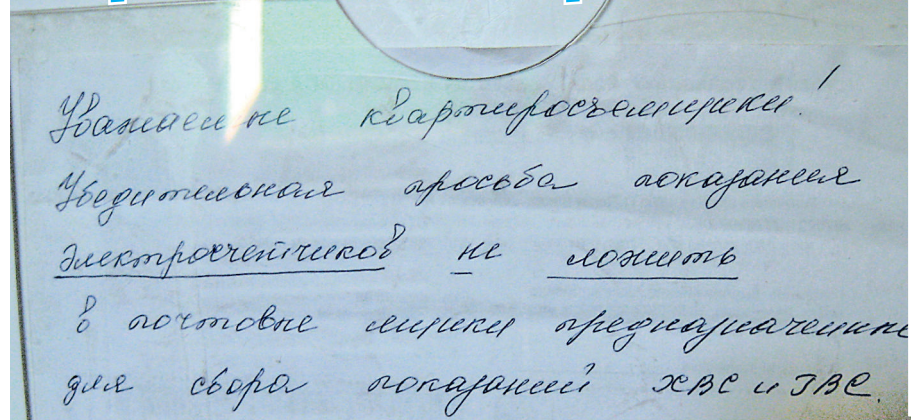 Уважаемые квартиросъемщики!
Убедительная просьба показания
электросчетчиков не ложить
в почтовые ящики предназначенные
для сбора показаний ХВС и ГВС.